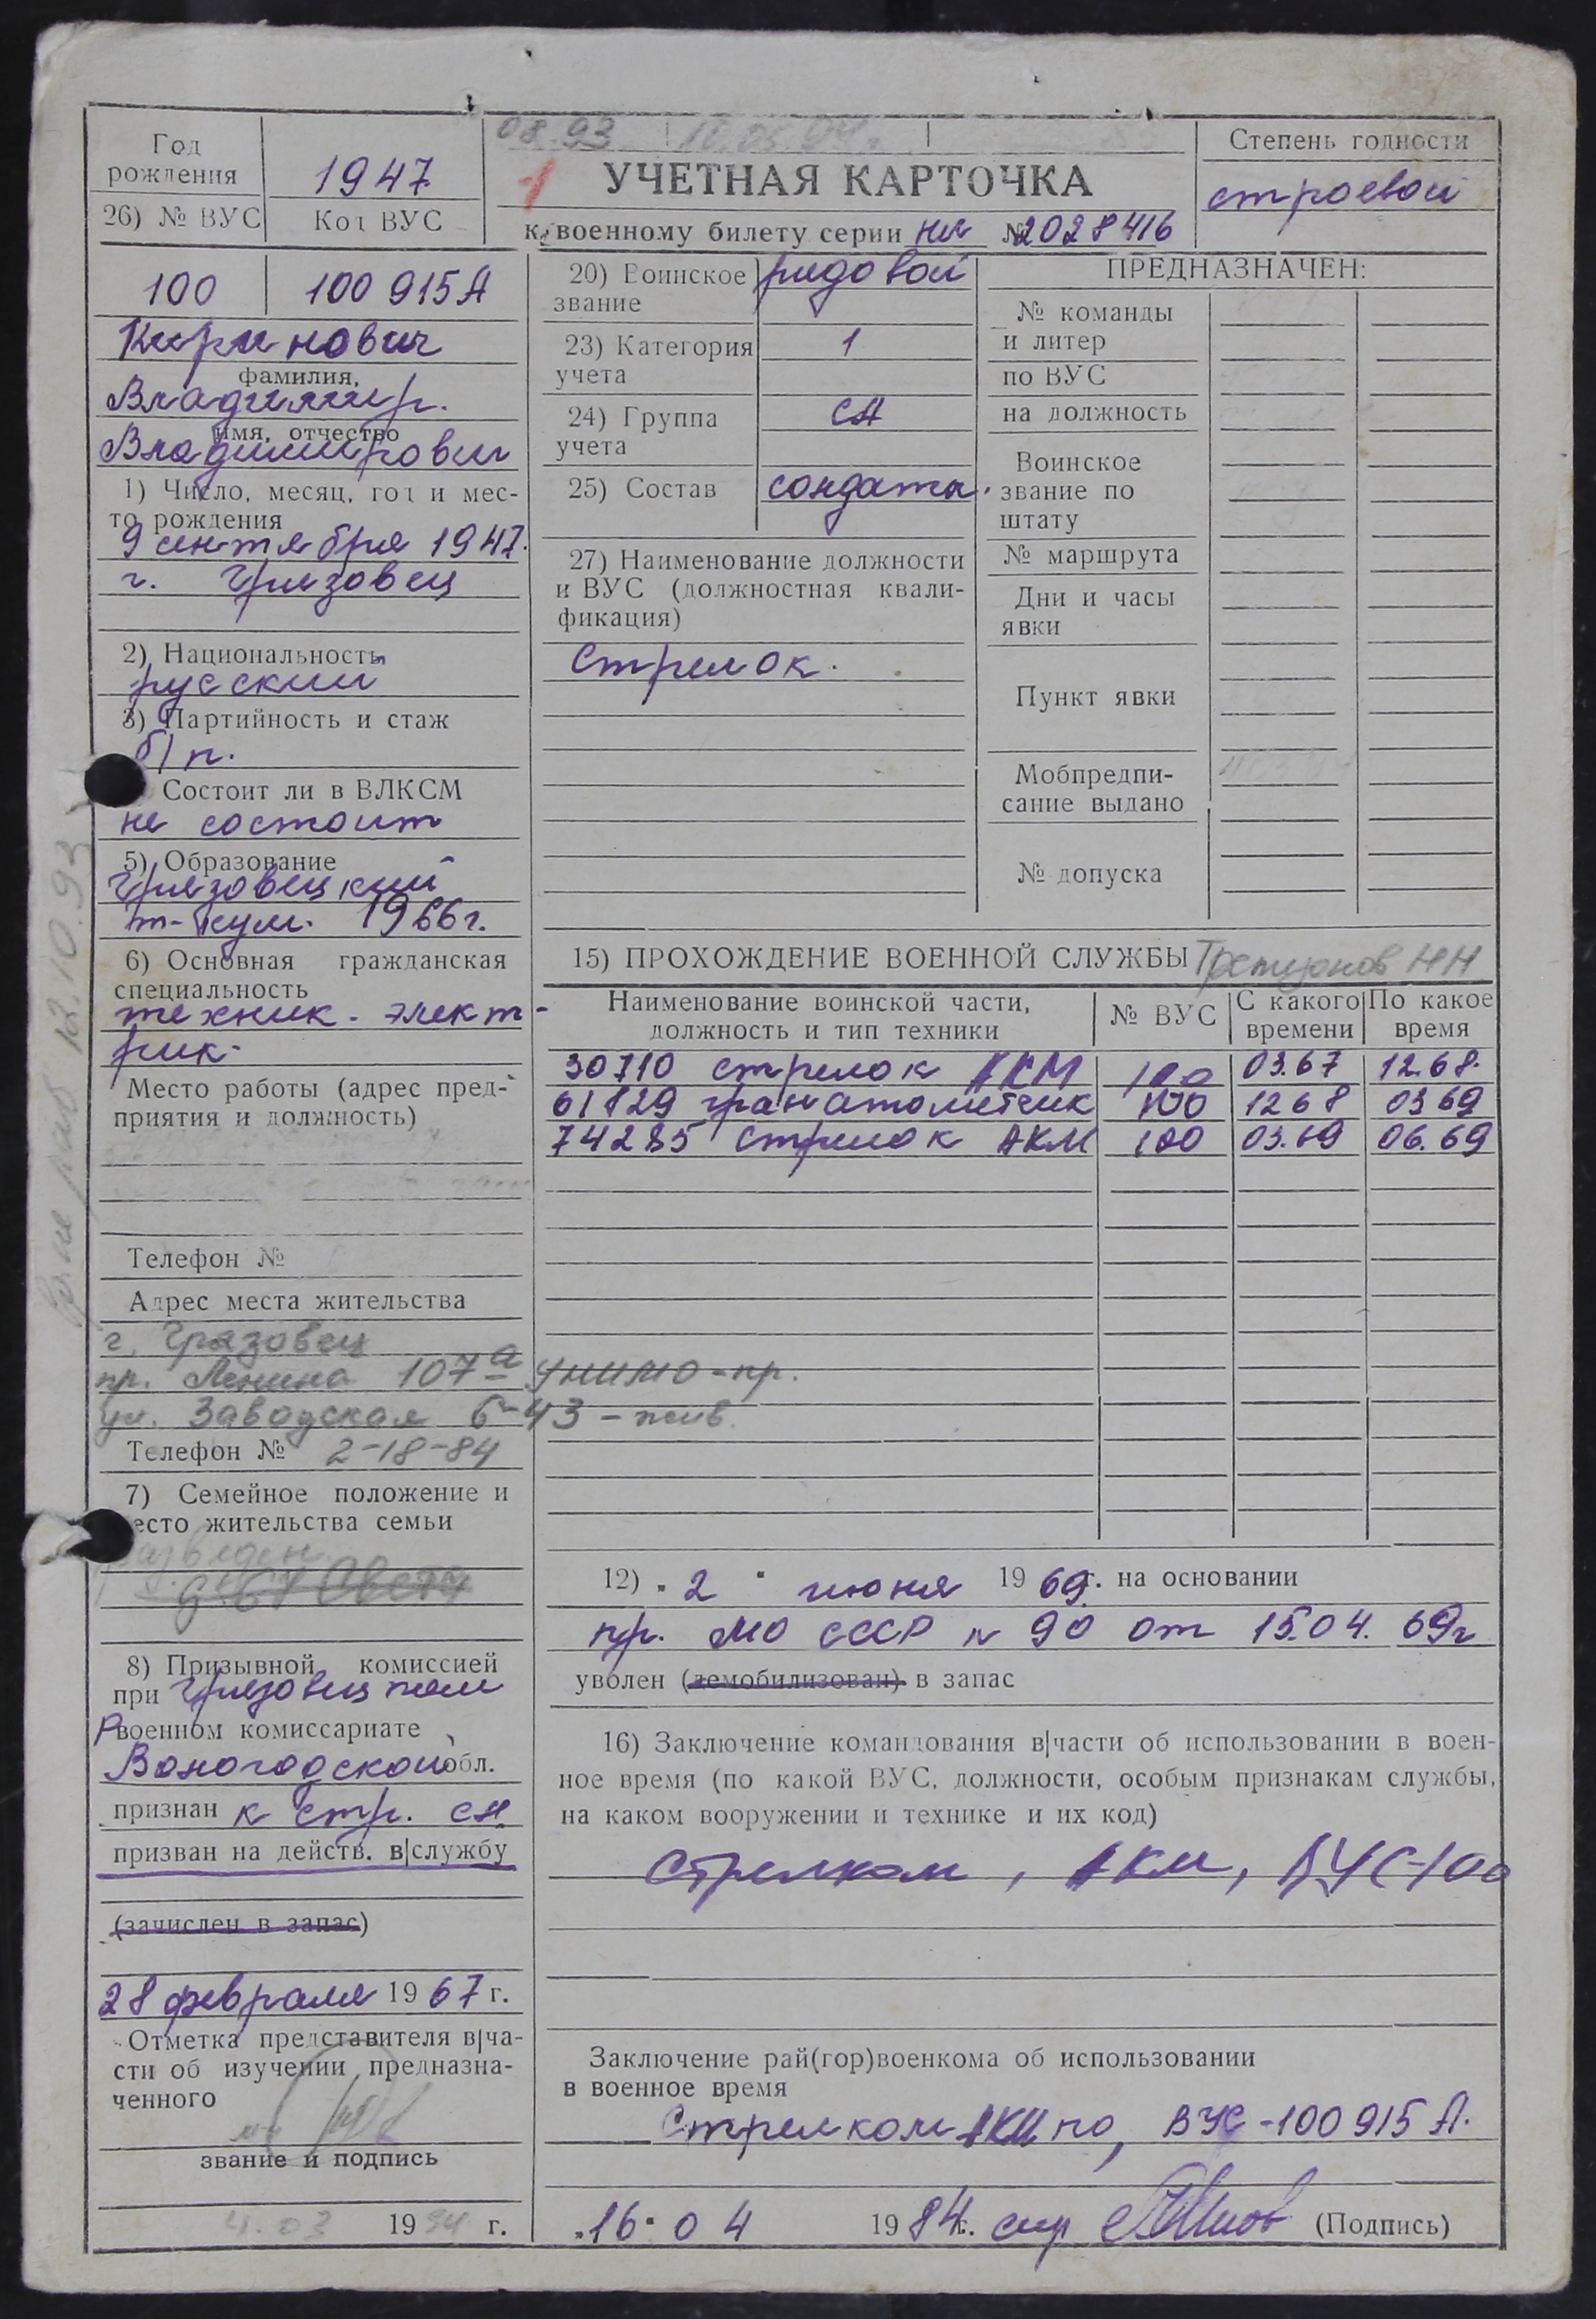 08.93 10.05.94г.
Год
рождения
1947
1
УЧЕТНАЯ КАРТОЧКА
Степень годности
строевой
26) № ВУС
Код ВУС
к военному билету серии НЯ № 2028416
100
100 915А
Киринович
фамилия,
Владимир.
имя, отчество
Владимирович
1) Число, месяц, год и мес-
то рождения
9 сентября 1947.
г. Грязовец
2) Национальность
русский
3) Партийность и стаж
б/п.
Состоит ли в ВЛКСМ
не состоит
5) Образование
Грязовецкий
т-кум. 1966г.
6) Основная гражданская
специальность
техник-элект-
рик.
Место работы (адрес пред-
приятия и должность)
Телефон №
Адрес места жительства
г. Грязовец
пр. Ленина 107а УНИМО-пр.
ул. Заводская 6-43 - жив.
Телефон № 2-18-84
7) Семейное положение и
место жительства семьи
разведен
8) Призывной комиссией
при Грязовецком
Рвоенном комиссариате
Вологодской обл.
признан к стр. сл.
призван на действ. в|службу
(зачислен в запас)
28 февраля 1967 г.
Отметка представителя в|ча-
сти об изучении предназна-
ченного
звание и подпись
4.03 1994 г.
20) Воинское
звание
рядовой
23) Категория
учета
1
24) Группа
учета
СА
25) Состав
солдаты.
27) Наименование должности
и ВУС (должностная квали-
фикация)
Стрелок.
ПРЕДНАЗНАЧЕН:
№ команды
и литер
по ВУС
на должность
Воинское
звание по
штату
№ маршрута
Дни и часы
явки
Пункт явки
Мобпредпи-
сание выдано
№ допуска
15) ПРОХОЖДЕНИЕ ВОЕННОЙ СЛУЖБЫ
Наименование воинской части,
должность и тип техники
№ ВУС
С какого
времени
По какое
время
30710 стрелок АКМ 100 03.67 12.68.
61829 гранатометчик 100 12 68 03 69
74285 стрелок АКМ 100 03.69 06.69
12) „2" июня 1969г. на основании
пр. МО СССР N 90 от 15.04. 69г
уволен (демобилизован) в запас
16) Заключение командования в|части об использовании в воен-
ное время (по какой ВУС, должности, особым признакам службы,
на каком вооружении и технике и их код)
Стрелком, АКМ, ВУС-100
Заключение рай(гор)военкома об использовании
в военное время
Стрелком АКМ по, ВУС-100 915 А.
„16" 04 1984г. (Подпись)